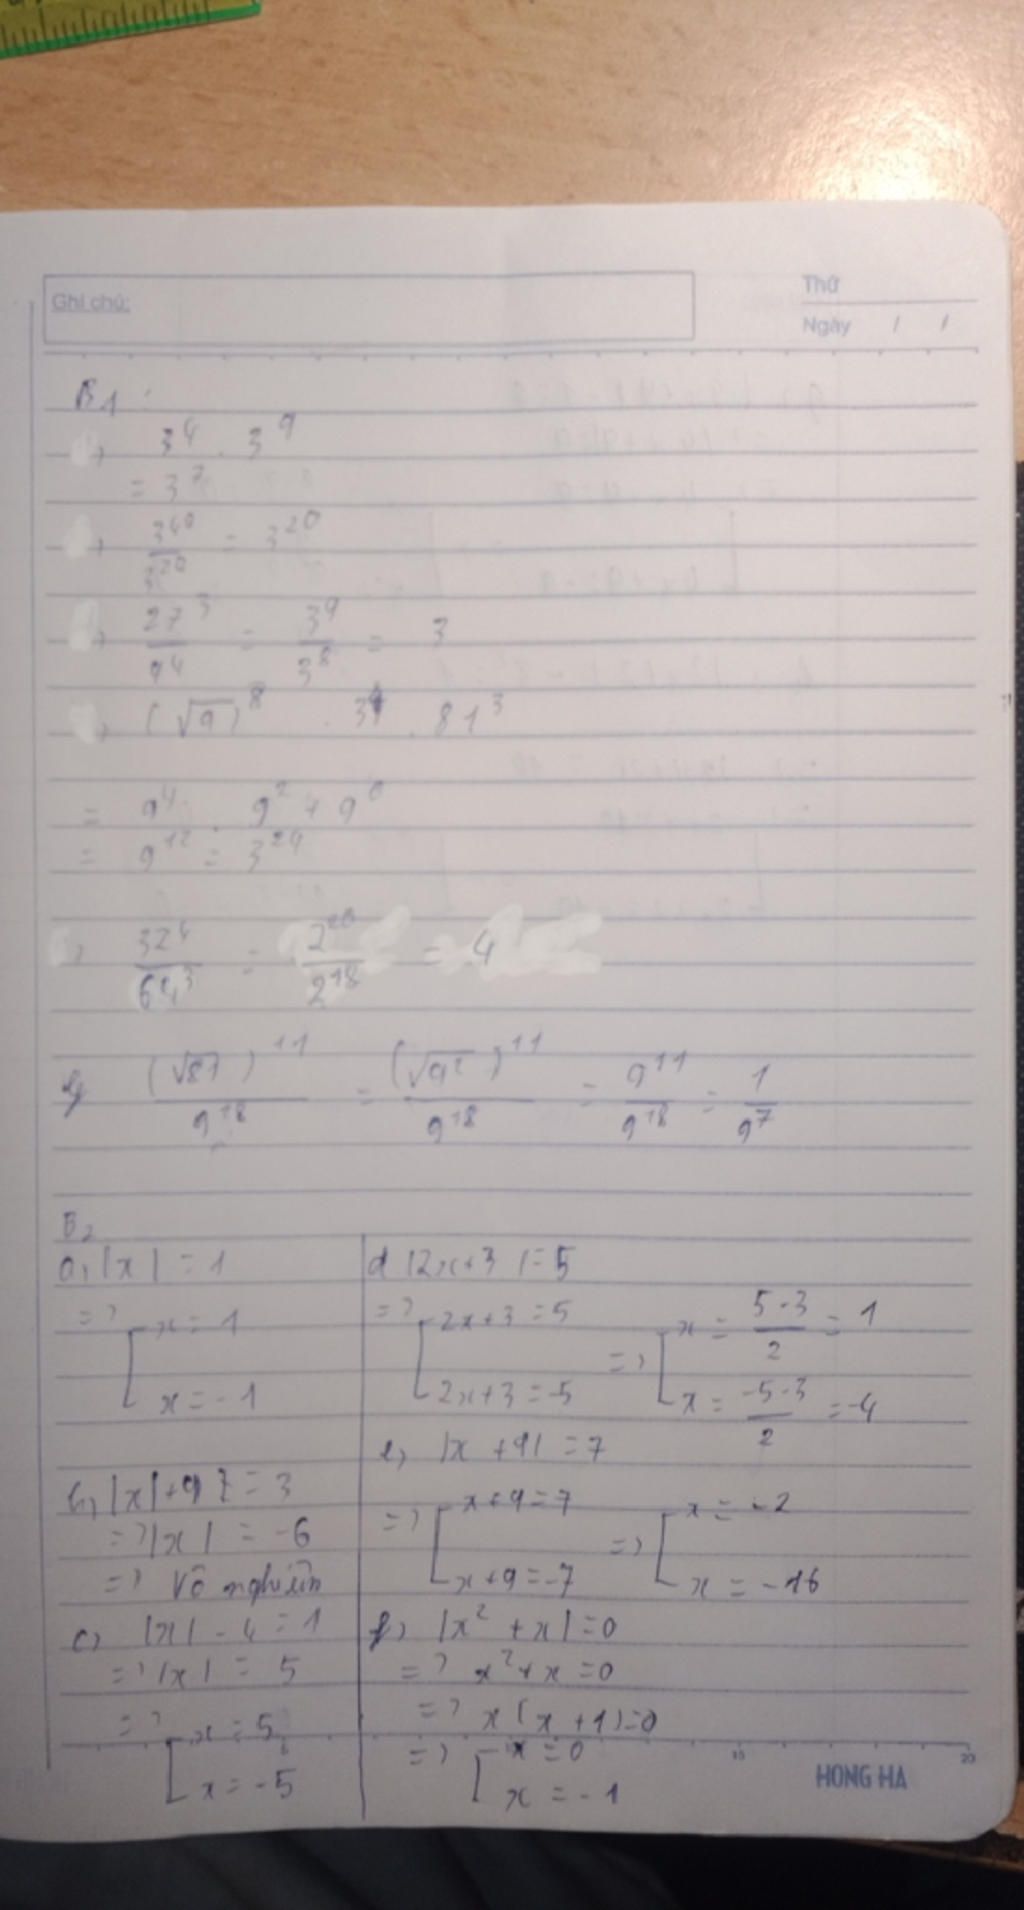 Ghi chú:
Thứ
Ngày / /
B1:
3^4 . 3^9
= 3^7
3^40/3^20 = 3^20
27^3/9^4 = 3^9/3^8 = 3
(√9)^8 . 3^4 . 81^3
= 9^4 . 9^2 + 9^6
= 9^12 = 3^24
32^4/64^3 = 2^20/2^18 = 4
(√81)^11/9^18 = (√9^2)^11/9^18 = 9^11/9^18 = 1/9^7
B2
a, |x| = 1
=> [ x = 1
x = -1
b, |x| + 9 = 3
=> |x| = -6
=> Vô nghiệm
c, |x| - 4 = 1
=> |x| = 5
=> [ x = 5
x = -5
d |2x+3| = 5
=> [ 2x+3 = 5 => [ x = (5-3)/2 = 1
2x+3 = -5 x = (-5-3)/2 = -4
e, |x + 9| = 7
=> [ x+9 = 7 => [ x = -2
x+9 = -7 x = -16
f, |x^2 + x| = 0
=> x^2 + x = 0
=> x(x+1) = 0
=> [ x = 0
x = -1
15 20
HONG HA